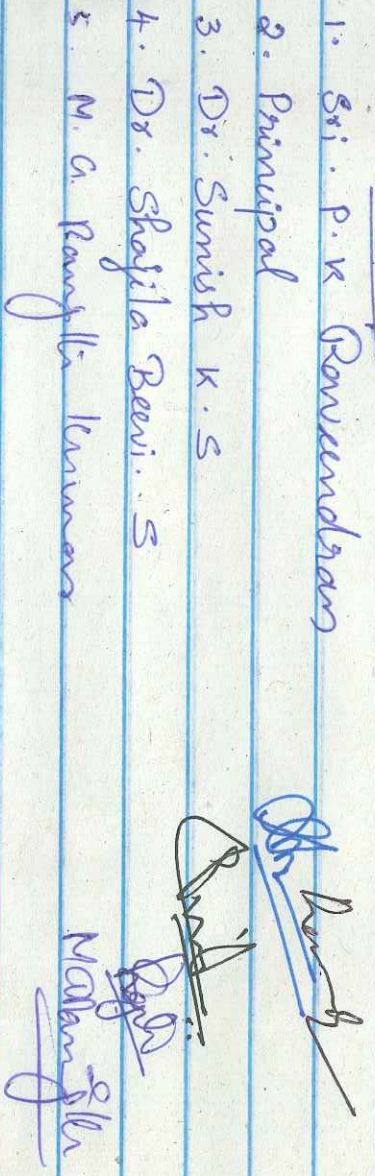 1. Sri. P. K Raveendran
2. Principal
3. Dr. Sunish K. S
4. Dr. Shajila Beevi. S
5. M. G. Ranjith Kumar